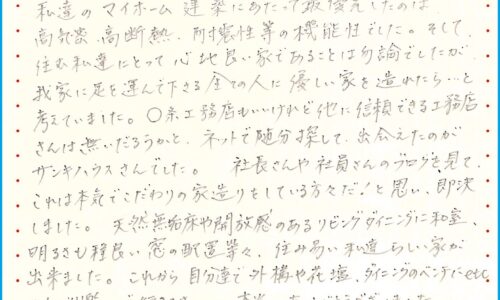 私達のマイホーム建築にあたって最優先したのは
高気密、高断熱、耐震性等の機能性でした。そして、
住む私達にとって心地良い家であることは勿論でしたが
我家に足を運んで下さる全ての人に優しい家を造れたら…と
考えていました。〇〇工務店もいいけれど他に信頼できる工務店
さんは無いだろうかと、ネットで随分探して、出会えたのが
サンキハウスさんでした。 社長さんや社員さんのブログを見て、
これは本気でこだわりの家造りをしている方々だ!と思い、即決
しました。天然無垢床や開放感のあるリビングダイニングに和室、
明るさも程良い窓の配置等々、住み易い私達らしい家が
出来ました。これから自分達で外構や花壇、ダイニングのベンチにetc